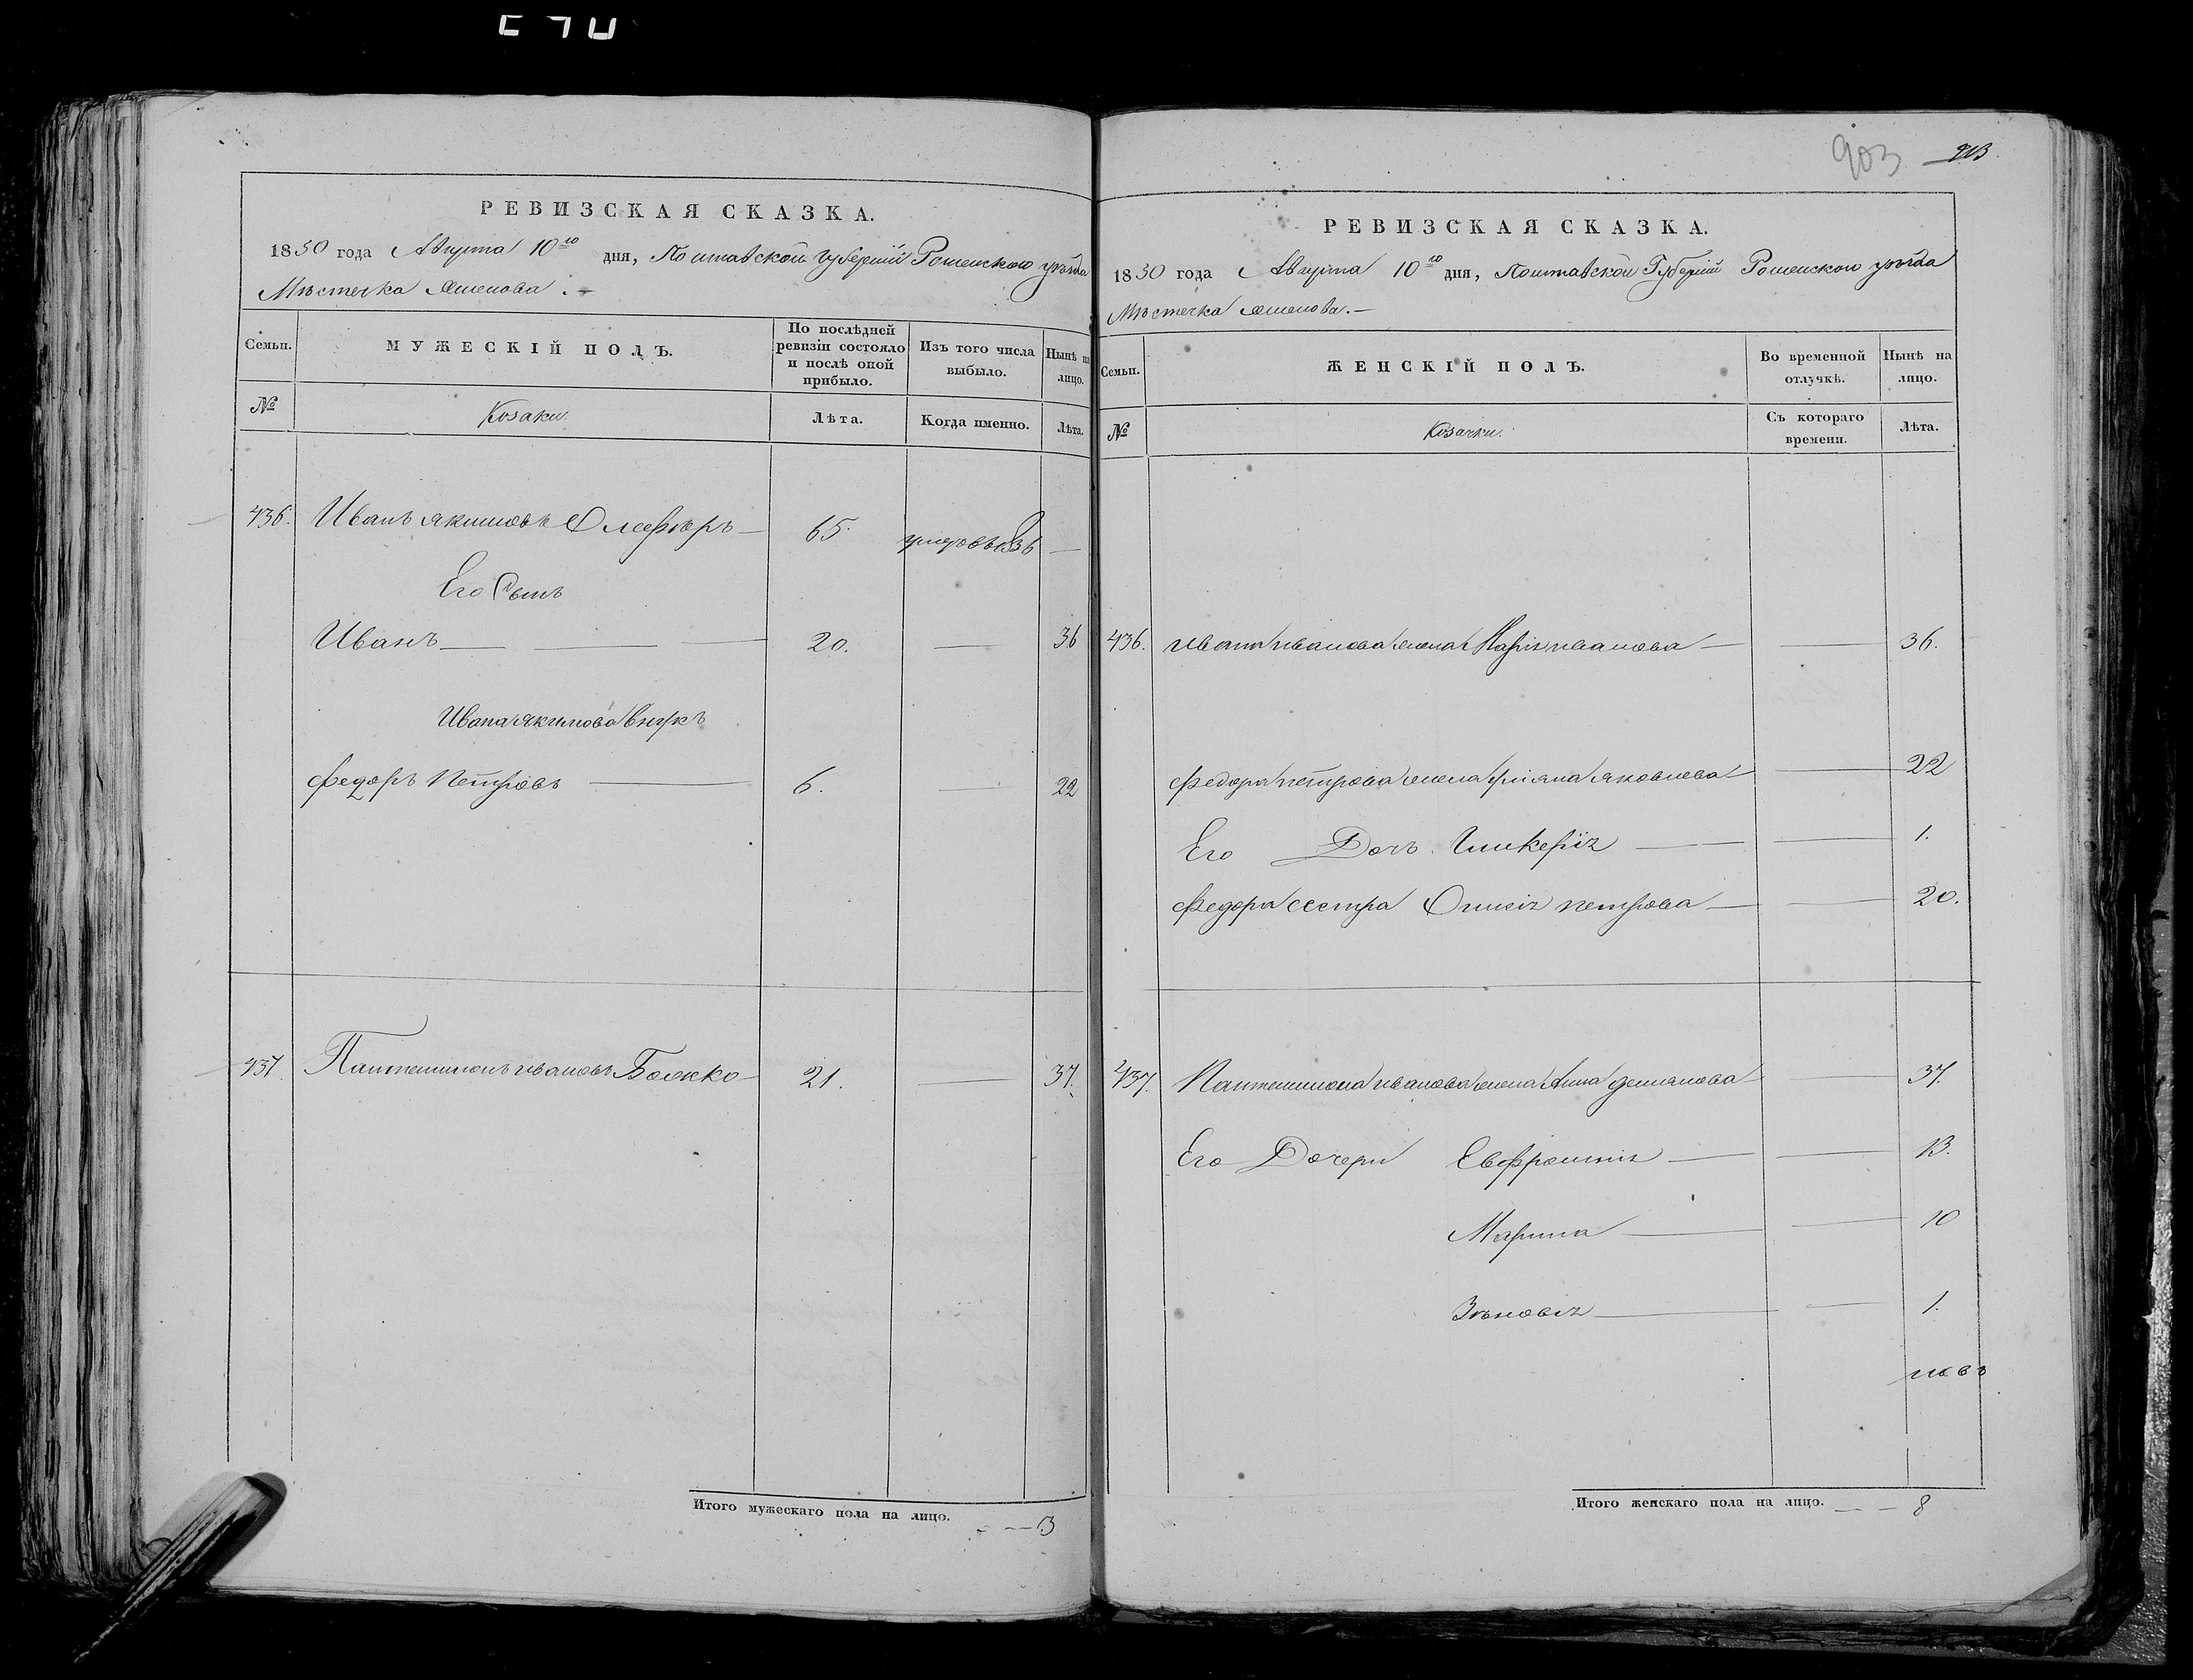 903
РЕВИЗСКАЯ СКАЗКА.
1850 года Августа 10го дня, Полтавской Губерніи Роменского уѣзда
Мѣстечка
Семьи.
МУЖЕСКІЙ ПОЛЪ.
По послѣдней ревизіи состояло и послѣ оной прибыло.
Изъ того числа выбыло.
Нынѣ на лицо.
№
Козаки.
Лѣта.
Когда именно.
Лѣта.
436. Иванъ Якимовъ Олефиръ 65. 1836 —
Его Сынъ
Иванъ — 20. — 36
Ивана Якимова внукъ
Федоръ Петровъ — 6. — 22
437. Пантелимонъ Ивановъ Божко 21. — 37.
Итого мужескаго пола на лицо. — 3
РЕВИЗСКАЯ СКАЗКА.
1850 года Августа 10го дня, Полтавской Губерніи Роменского уѣзда
Мѣстечка
Семьи.
ЖЕНСКІЙ ПОЛЪ.
Во временной отлучкѣ.
Нынѣ на лицо.
№
Козачки.
Съ котораго времени.
Лѣта.
436. Ивана Иванова жена Марія Иванова — 36.
Федора Петрова жена Уліяна Яковлева — 22
Его Дочь Гликерія — 1.
Федора сестра Петрова — 20.
437. Пантелимона Иванова жена Анна Демянова — 37.
Его Дочери Евфросинія — 13.
Марина — 10
Зѣновія — 1.
Итого женскаго пола на лицо. — 8